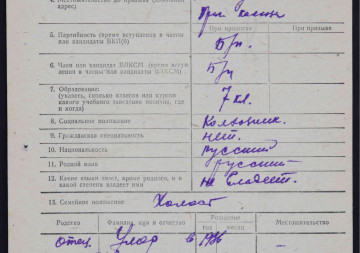 4. Местожительство до призыва (домашний
адрес)
При части
5. Партийность (время вступления в члены
или кандидаты ВКП(б)
При призыве
Б/п.
6. Член или кандидат ВЛКСМ (время вступ
ления в члены или кандидаты ВЛКСМ)
Б/п
7. Образование:
(указать, сколько классов или курсов
какого учебного заведения окончил, где
и когда)
7 кл.
8. Социальное положение
Колхозник.
9. Гражданская специальность
нет.
10. Национальность
русский
11. Родной язык
русский
12. Какие языки знает, кроме родного, и в
какой степени владеет ими
не владеет.
13. Семейное положение
Холост
Родство
Фамилия, имя и отчество
Рождение
год
Местожительство
отец